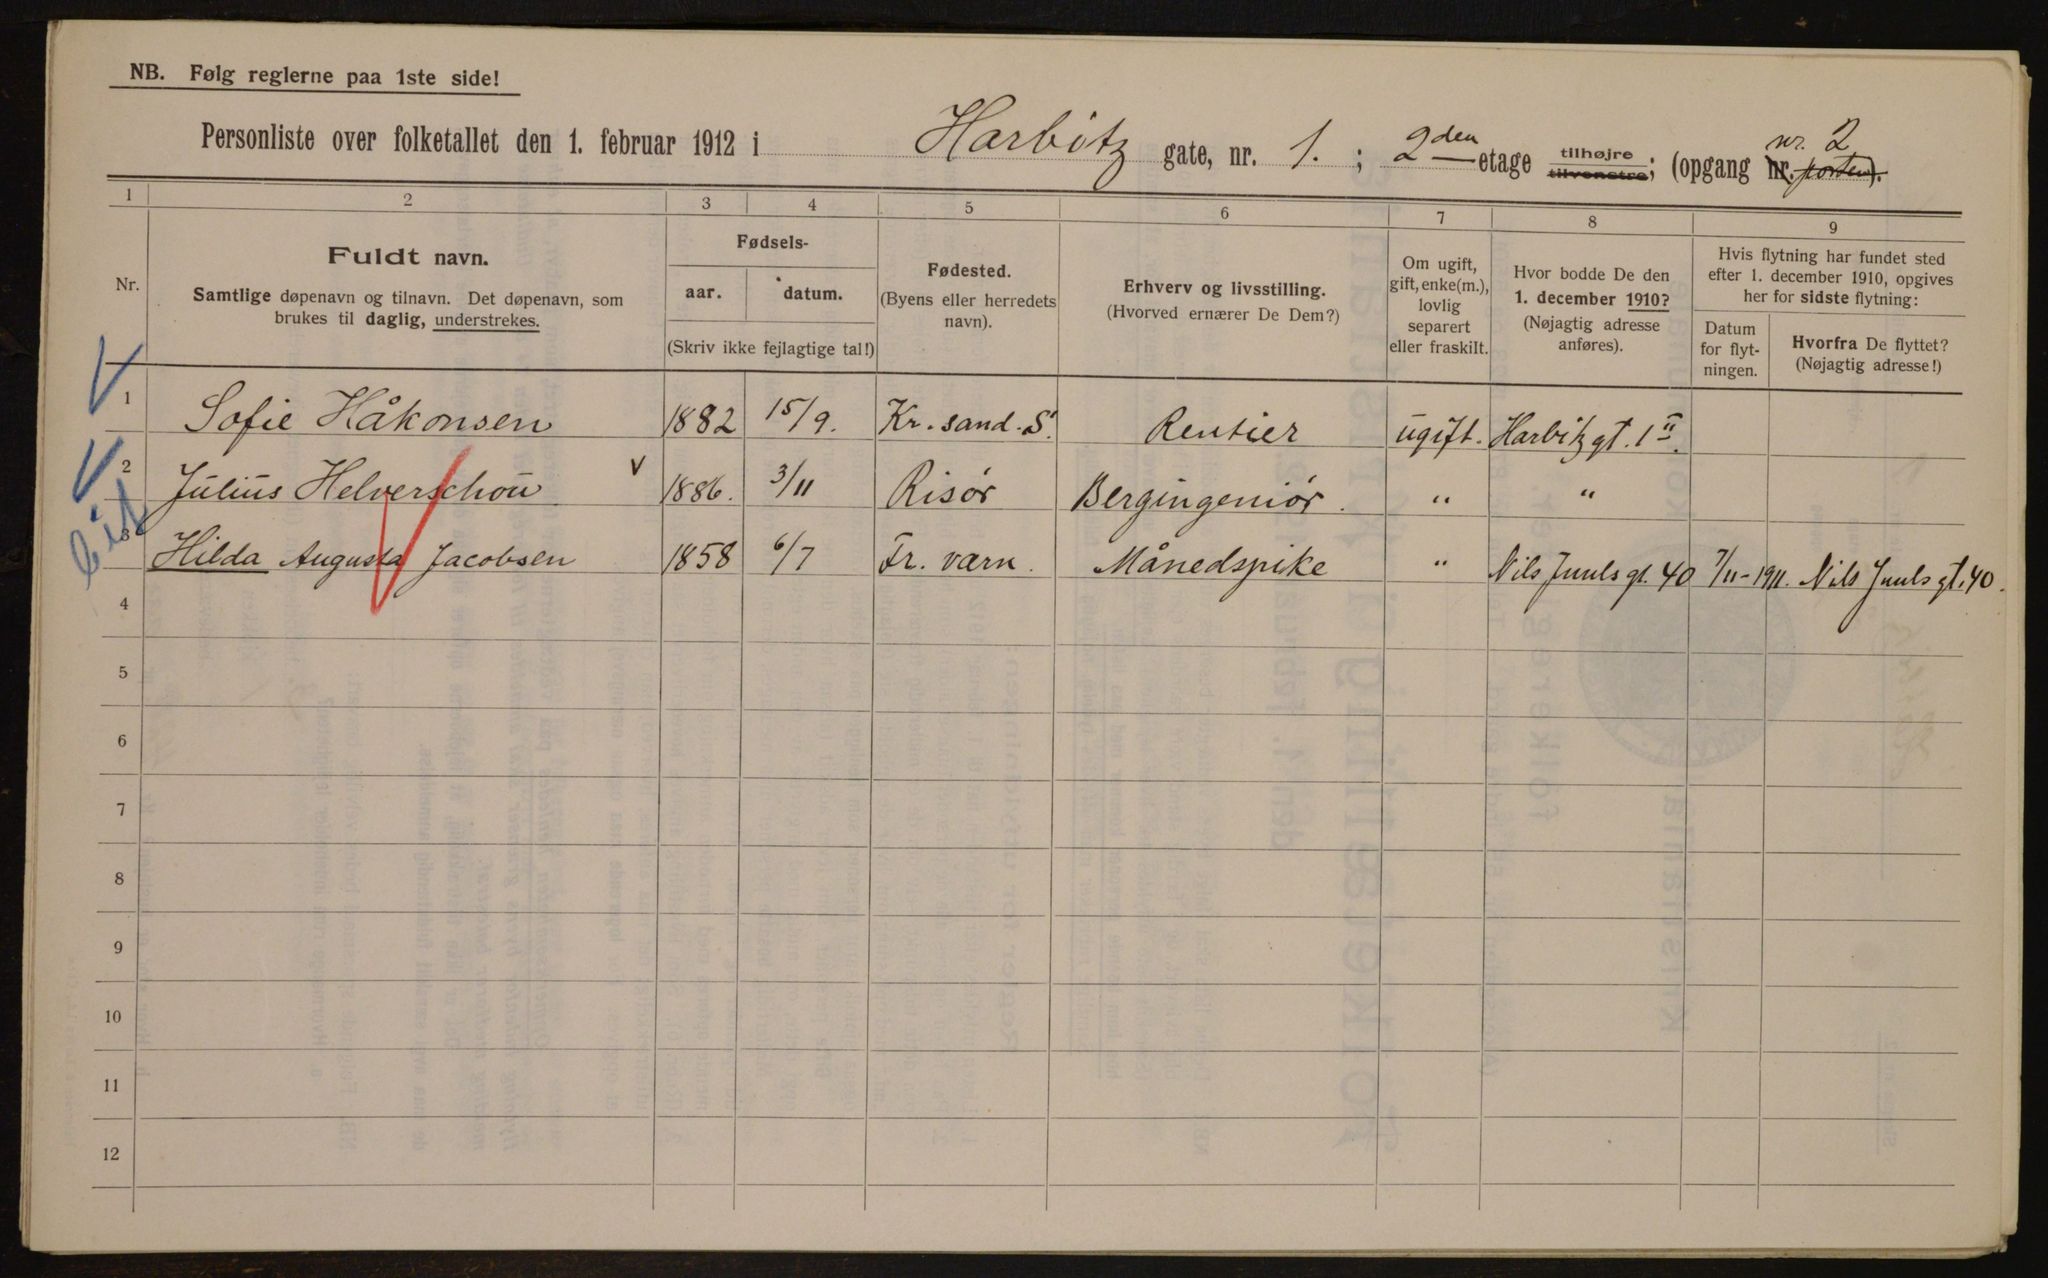 NB. Følg reglerne paa 1ste side!
Personliste over folketallet den 1. februar 1912 i Harbitz gate, nr. 1. ; 2den etage tilhøjre tilvenstre; (opgang nr. porten). nr. 2
1 2 3 4 5 6 7 8 9
Nr.
Fuldt navn.
Samtlige døpenavn og tilnavn. Det døpenavn, som
brukes til daglig, understrekes.
Fødsels-
aar. datum.
(Skriv ikke fejlagtige tal!)
Fødested.
(Byens eller herredets
navn).
Erhverv og livsstilling.
(Hvorved ernærer De Dem?)
Om ugift,
gift, enke(m.),
lovlig
separert
eller fraskilt.
Hvor bodde De den
1. december 1910?
(Nøjagtig adresse
anføres).
Hvis flytning har fundet sted
efter 1. december 1910, opgives
her for sidste flytning:
Datum
for flyt-
ningen.
Hvorfra De flyttet?
(Nøjagtig adresse!)
1 Sofie Håkonsen 1882 15/9. Kr. sand. S. Rentier ugift. Harbitz gt. 1 II.
2 Julius Helverschou V 1886. 3/11 Risør Bergingeniør. " "
3 Hilda Augusta Jacobsen 1858 6/7 Fr. værn. Månedspike " Nils Juuls gt. 40 7/11-1911. Nils Juuls gt. 40.
4
5
6
7
8
9
10
11
12